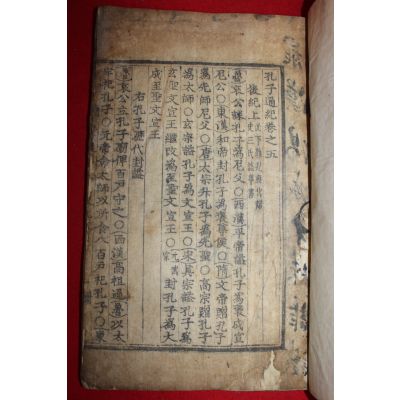 孔子通紀卷之五
後紀上
魯哀公誄孔子爲尼父○西漢平帝謚孔子爲褒成宣
尼公○東漢和帝封孔子爲褒尊侯○隋文帝贈孔子
爲先師尼父○唐太宗升孔子爲先聖○高宗贈孔子
爲太師○玄宗謚孔子爲文宣王○宋眞宗謚孔子爲
玄聖文宣王繼改爲至聖文宣王○元武宗封孔子爲大
成至聖文宣王
右孔子歷代封謚
魯哀公立孔子廟置百戶守之○西漢高祖過魯以太
牢祀孔子○元帝令太師以所食八百戶祀孔子○東